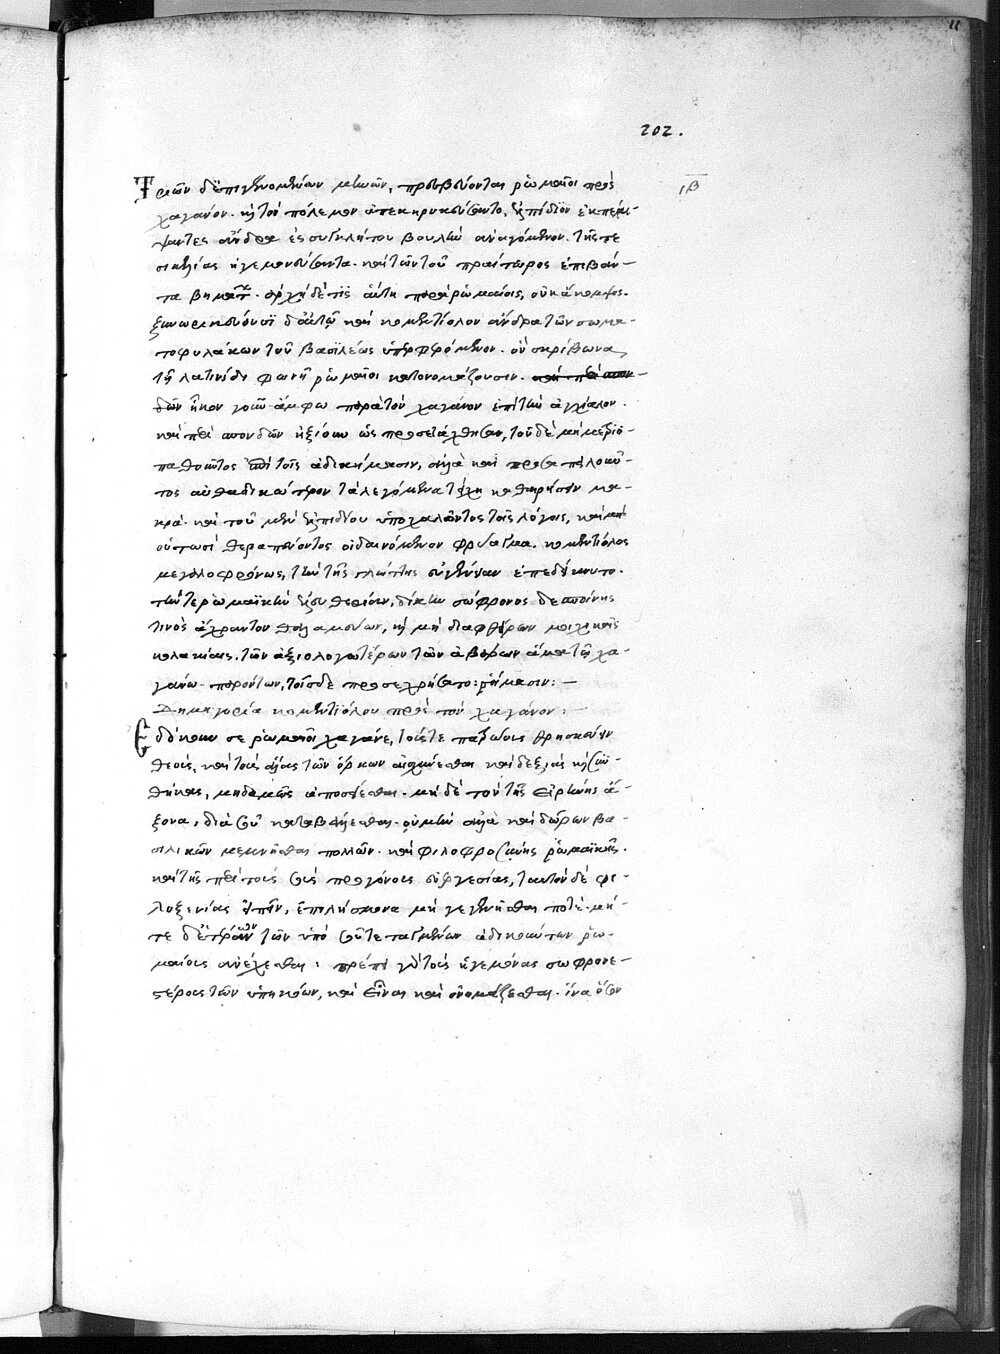 202.
Τριῶν δ' ἐπιγενομένων μηνῶν, πρεσβεύονται ῥωμαῖοι πρὸς ͵ιβ
χαγάνον. καίτοι πόλεμον ἀπεκηρυκεύσαντο, ἐλπίδιον ἐκπέμ-
ψαντες ἄνδρα ἐς συγκλήτου βουλὴν ἀναγόμενον. τῆς τε
σικελίας ἡγεμονεύσαντα. καὶ τῶν τοῦ πραίτωρος ἐπιβάν-
τα βημάτων. ἀρχὴ δέ τις αὕτη παρὰ ῥωμαίοις, οὐκ ἄκομψος.
ξυνωρικεύουσι δ' αὐτῷ καὶ κομεντίολον ἄνδρα τῶν σωμα-
τοφυλάκων τοῦ βασιλέως ὑπερφερόμενον. ὃν σκρίβωνα
τῇ λατινίδι φωνῇ ῥωμαῖοι κατονομάζουσιν. καὶ περὶ σπον-
δῶν ἧκον γοῦν ἄμφω παρὰ τὸν χαγάνον ἐπὶ τὴν ἀγχίαλον.
καὶ περὶ σπονδῶν ἠξίουν ὡς προσετάχθησαν, τοῦ δὲ μὴ μετριο-
παθοῦντος ἐπὶ τοῖς ἀδικήμασιν, ἀλλὰ καὶ προσαπειλοῦν-
τος αὐθαδικώτερον τὰ λεγόμενα τείχη καθαιρήσειν μα-
κρά. καὶ τοῦ μὲν ἐλπιδίου ὑποχαλῶντος τοῖς λόγοις, καὶ
οὑτωσὶ θεραπεύοντος οἰδαινόμενον φρύαγμα. κομεντίολος
μεγαλοφρόνως, τὴν τῆς γλώττης εὐγένειαν ἐπεδείκνυτο.
τήν τε ῥωμαϊκὴν ἐλευθερίαν, δίκην σώφρονος δεσποίνης
τινὸς ἄχραντον θαλαμεύων, καὶ μὴ διαφθείρων μοιχικαῖς
κολακείαις. τῶν ἀξιολογωτέρων τῶν ἀβάρων ἅμα τῷ χα-
γάνῳ παρόντων, τοῖσδε προσεχρήσατο ῥήμασιν: —
Δημηγορία κομεντιόλου πρὸς τὸν χαγάνον: —
Ἐδόκουν σε ῥωμαῖοι χαγάνε, τούς τε πατρῴους θρησκεύειν
θεούς, καὶ τοὺς ἄλλους τῶν ὅρκων αἰσχύνεσθαι καὶ δεξιὰς καὶ συν-
θήκας, μηδαμῶς ἀποσείεσθαι. μηδὲ τὸν τῆς εἰρήνης ἄ-
ξονα, διὰ σοῦ καταβάλλεσθαι. οὐ μὴν ἀλλὰ καὶ δώρων βα-
σιλικῶν μεμνῆσθαι πολλῶν. καὶ φιλοφροσύνης ῥωμαϊκῆς.
καὶ τῆς περὶ τοὺς σοὺς προγόνους εὐεργεσίας, ταυτὸν δὲ φι-
λοξενίας εἰπεῖν, ἐπιλήσμονα μὴ γεγενῆσθαι ποτέ. μή-
τε δ' ἑτέρων τῶν ὑπὸ σοῦ τεταγμένων ἀδικούντων ῥω-
μαίους ἀνέχεσθαι. πρέπει γὰρ τοὺς ἡγεμόνας σωφρονε-
στέρους τῶν ὑπηκόων, καὶ εἶναι καὶ ὀνομάζεσθαι. ἵνα ὅσον